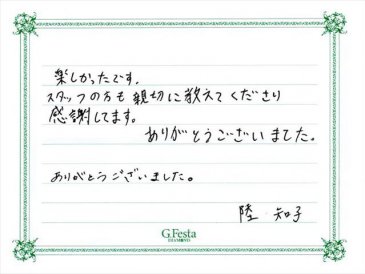 楽しかったです。
スタッフの方も親切に教えてくださり
感謝してます。
ありがとうございました。
ありがとうございました。
陸 知子
G.Festa
DIAMOND